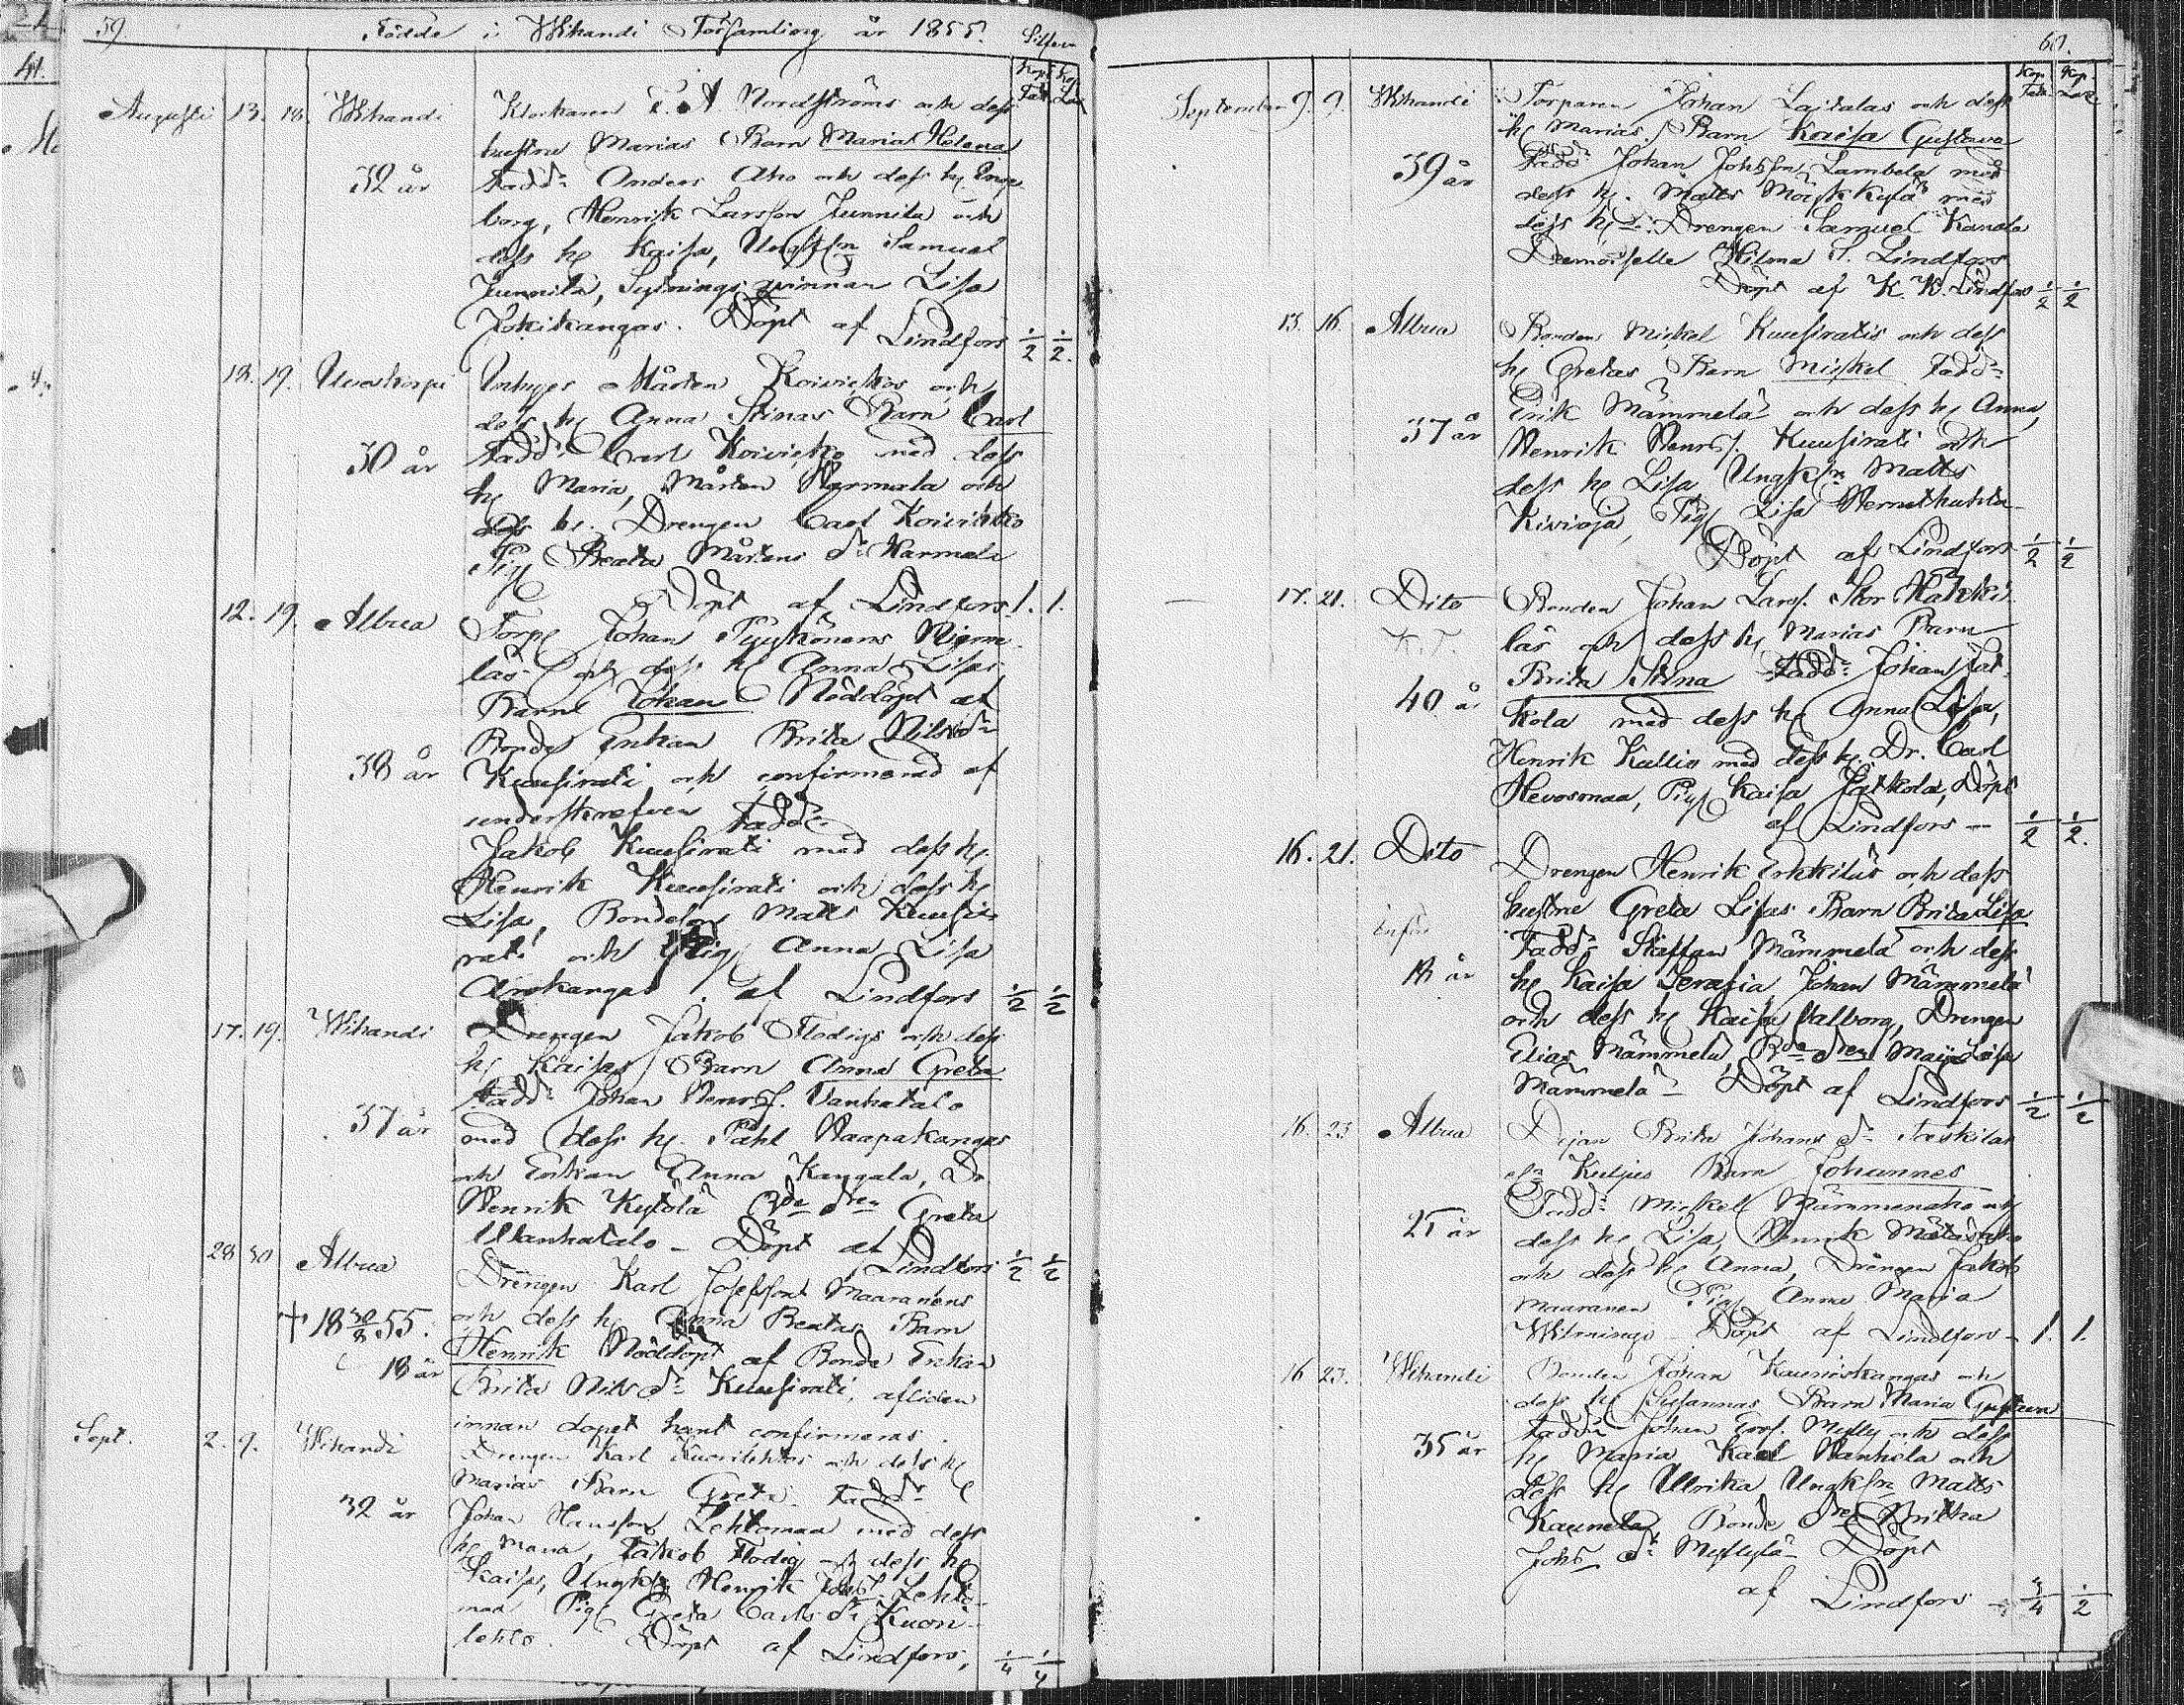 59. Födde i Wihandi Församling år 1855. Silfver
Kop. Kop.
Augusti 13. 18. Wihandi Klockaren E. A Nordströms och dess
hustru Marias Barn Maria Helena
32 år fadd: Anders Aho och dess h. Inge
borg, Henrik Larsson Junnila och
dess h. Kaisa, Ungk. Samuel
Junnila, Sytningsqvinnan Lisa
Jokikangas. Döpt af Lindfors ½ ½.
18. 19. Inhyses Mårten Koivistos och
dess h. Anna Stinas Barn Carl
30 år fadd: Carl Koivisto med dess
h. Maria, Mårten Harmala och
dess h. Drengen Carl Koivisto
Pig. Beata Mårtens dr Harmala
Döpt af Lindfors. 1. 1.
12. 19. Albua Torp. Johan Pyykönens
läs och dess h. Anna Lisas
Barn Johan Nöddöpt af
Bonde Enkan Brita Nils dr
38 år Kuusirati och confirmerad af
underskrefven fadd:
Jakob Kuusirati med dess h.
Henrik Kuusirati och dess h.
Lisa, Bondeson Matts Kuusi-
rati och Pig. Anna Lisa
Arokangas. af Lindfors ½ ½
17. 19. Wihandi Drengen Jakob Flodigs och dess
h. Kaisas Barn Anna Greta
fadd: Johan Henrs. Vanhatalo
37 år med dess h. Påhl Haapakangas
och Enkan Anna Kangala, Dr
Henrik Kytölä Bde dren Greta
Wanhatalo - Döpt af Lindfors ½ ½
28 30 Albua Drengen Karl Josefsson Maaranens
† 18 30/8 55. och dess h. Anna Beatas Barn
Henrik Nöddöpt af Bonde Enkan
18 år Brita Nils dr Kuusirati, afliden
innan dopet hant confirmeras.
Sept. 2. 9. Wihandi Drengen Karl Kuonilehtos och dess h
Marias Barn Greta. Fadd:
32 år Johan Hansson Lehtomaa med dess
h. Maria, Jakob Flodig och dess h
Kaisa, Ungk. Henrik Johs. Lehto-
maa Pig. Greta Carls dr Kuoni-
lehto. Döpt af Lindfors, ¼ ¼
60.
Kop. Kop.
September 9. 9. Wihandi Torparen Johan Lajtalas och dess
h. Marias, Barn Kaisa Gustava
Fadd: Johan Johsson Lambela med
39 år dess h. Matts Mäkikylä med
dess h. Drengen Samuel Kanala
Demoiselle Hilma S. Lindfors
Döpt af K. K. Lindfors ½ ½
15. 16. Albua Bonden Mickel Kuusiratis och dess
h. Gretas Barn Mickel Fadd:
Erik Mämmelä och dess h. Anna,
37 år Henrik Henrs. Kuusirati och
dess h. Lisa Ungk. Matts
Kivioja, Pig. Lisa Hernethuhta
Döpt af Lindfors ½ ½
17. 21. Dito Bonden Johan Larss. Stor
K.T. läs och dess h. Marias Barn
Brita Stina Fadd: Johan Jät-
40 år kola med dess h. Anna Lisa,
Henrik Kallio med dess h. Dr. Carl
Hevosmaa, Pig. Kaisa Jätkola, Döpt
af Lindfors - ½ ½.
16. 21. Dito Drengen Henrik Erkkiläs och dess
hustru Greta Lisas Barn Brita Lisa
Fadd: Staffan Mämmelä och dess
18 år h. Kaisa Serafia Johan Mämmelä
och dess h. Kaisa Valborg, Drengen
Elias Mämmelä, Bde dren Maija Lisa
Mämmelä - Döpt af Lindfors ½ ½
16. 23 Albua Pigan Brita Johans dr
Barn Johannes
Fadd: Mickel Mämmenaho och
25 år dess h. Lisa, Henrik
och dess h. Anna, Drengen Jakob
Maaranen Pig. Anna Maria
Wilminge Döpt af Lindfors - 1. 1.
16 23. Wihandi Bonden Johan Kauniskangas och
dess h. Susannas Barn Maria Gustava
Fadd: Johan Mylly och dess
35 år h. Maria Karl Wanhala och
dess h. Ulrika Ungk. Matts
Kaunela Bonde dren Britha
Johs dr Myllylä - Döpt
af Lindfors - ¾ ½